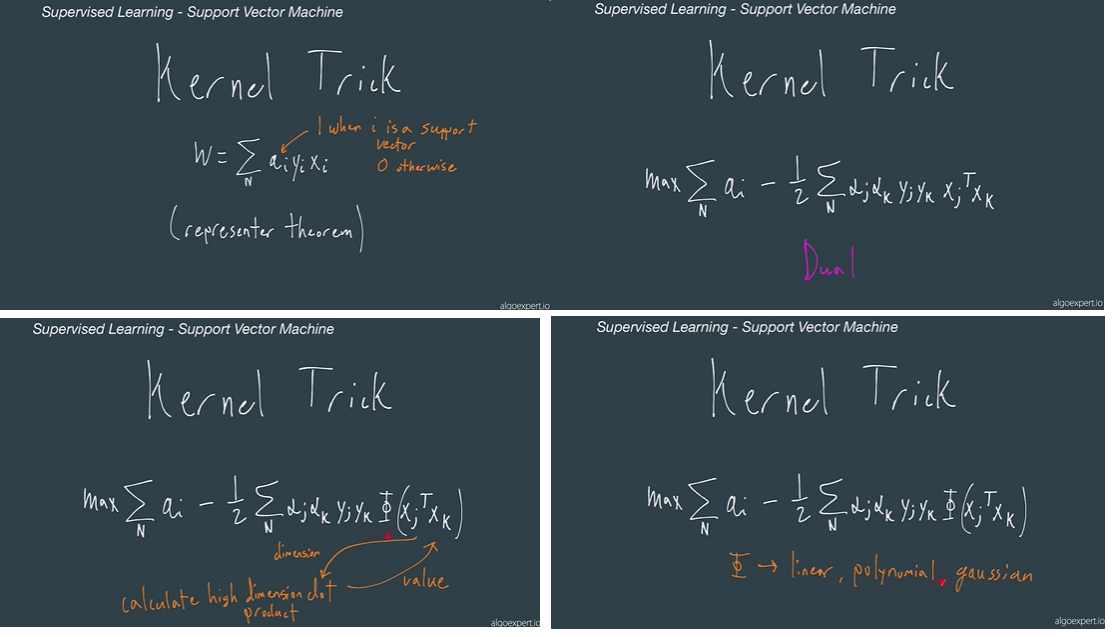 Supervised Learning - Support Vector Machine
Kernel Trick
W = ∑_N a_i y_i x_i
1 when i is a support
vector
0 otherwise
(representer theorem)
algoexpert.io
Supervised Learning - Support Vector Machine
Kernel Trick
max ∑_N a_i - 1/2 ∑_N α_j α_k y_j y_k x_j^T x_k
Dual
algoexpert.io
Supervised Learning - Support Vector Machine
Kernel Trick
max ∑_N a_i - 1/2 ∑_N α_j α_k y_j y_k Φ(x_j^T x_k)
dimension
calculate high dimension dot
product
value
algoexpert.io
Supervised Learning - Support Vector Machine
Kernel Trick
max ∑_N a_i - 1/2 ∑_N α_j α_k y_j y_k Φ(x_j^T x_k)
Φ → linear, polynomial, gaussian
algoexpert.io